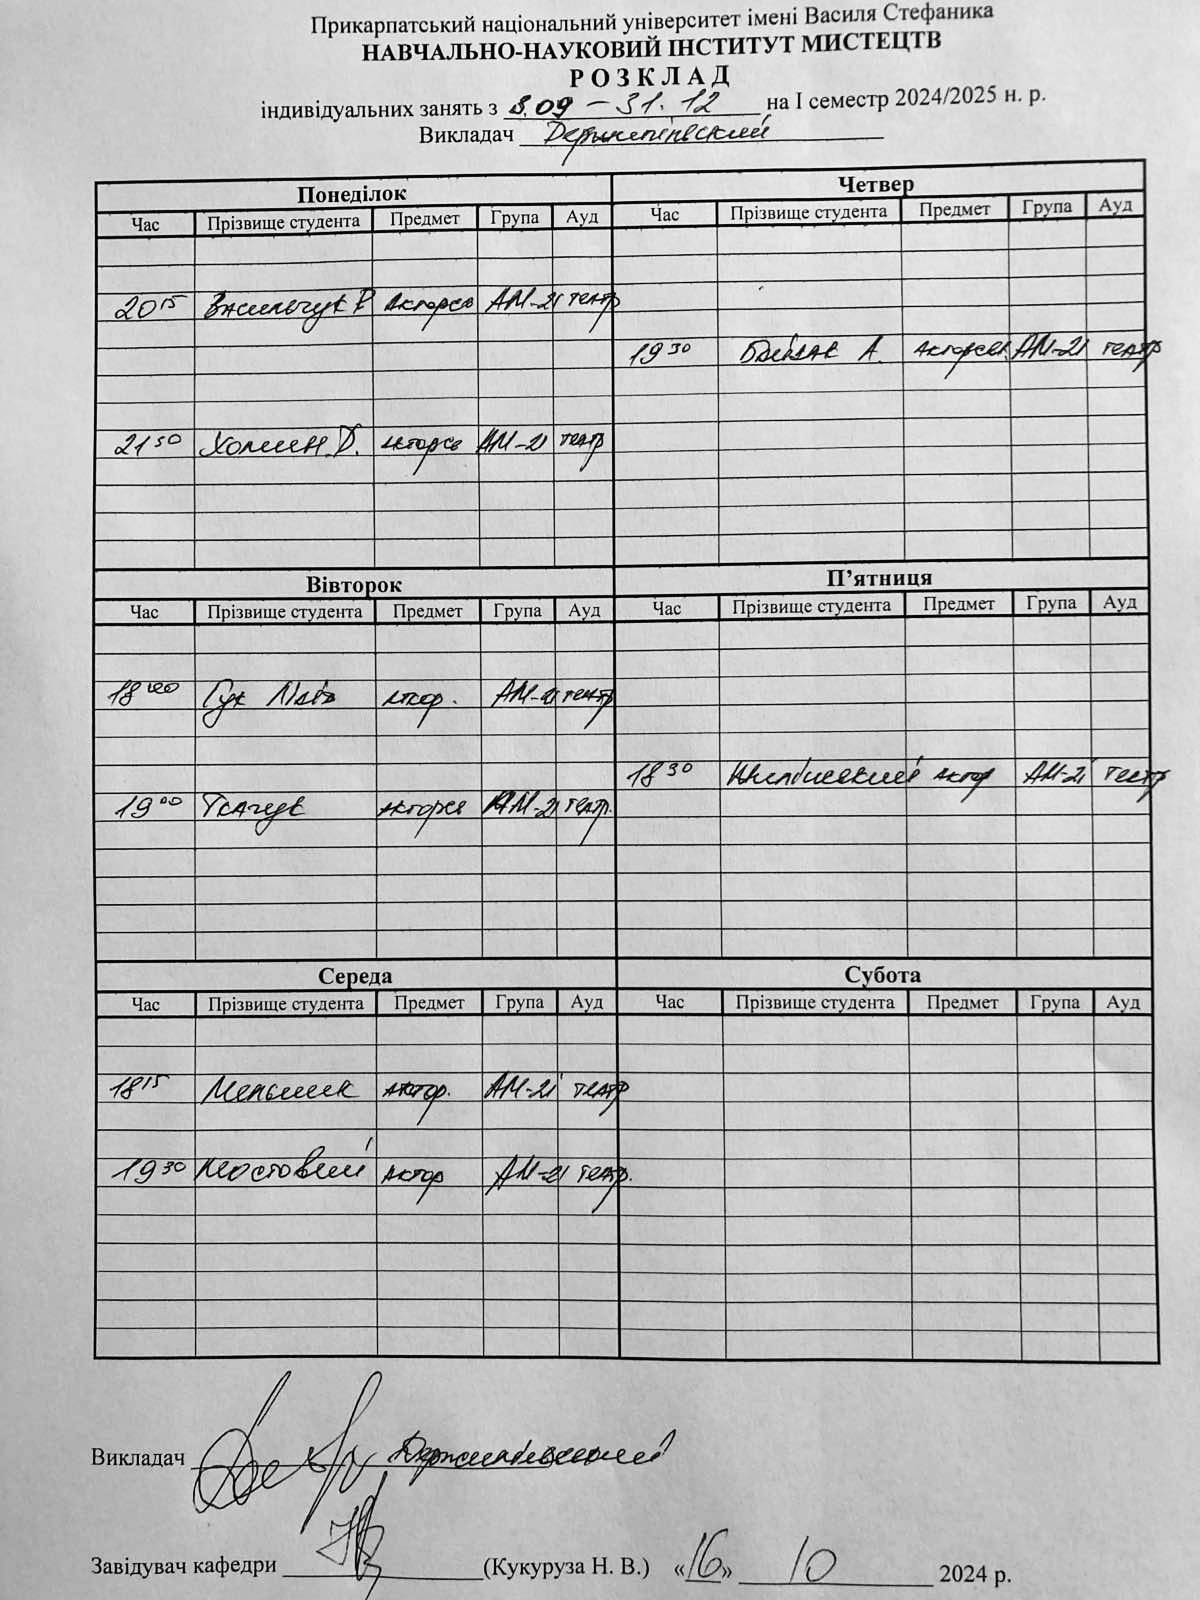 Прикарпатський національний університет імені Василя Стефаника
НАВЧАЛЬНО-НАУКОВИЙ ІНСТИТУТ МИСТЕЦТВ
РОЗКЛАД
індивідуальних занять з 3.09 – 31.12 на І семестр 2024/2025 н. р.
Викладач
Понеділок
Час Прізвище студента Предмет Група Ауд
20 15 Васильчук Р. Акторсь АМ-21 театр
21 30 Хомин Д. акторсь АМ-21 театр
Четвер
Час Прізвище студента Предмет Група Ауд
19 30 А. Акторськ АМ-21 театр
Вівторок
Час Прізвище студента Предмет Група Ауд
18 00 Гук актор. АМ-21 театр
19 00 Ткачук акторсь АМ-21 театр.
П’ятниця
Час Прізвище студента Предмет Група Ауд
18 30 актор АМ-21 театр
Середа
Час Прізвище студента Предмет Група Ауд
18 15 Мельник актор. АМ-21 театр
19 30 Мостовий актор АМ-21 театр.
Субота
Час Прізвище студента Предмет Група Ауд
Викладач
Завідувач кафедри (Кукуруза Н. В.) «16» 10 2024 р.